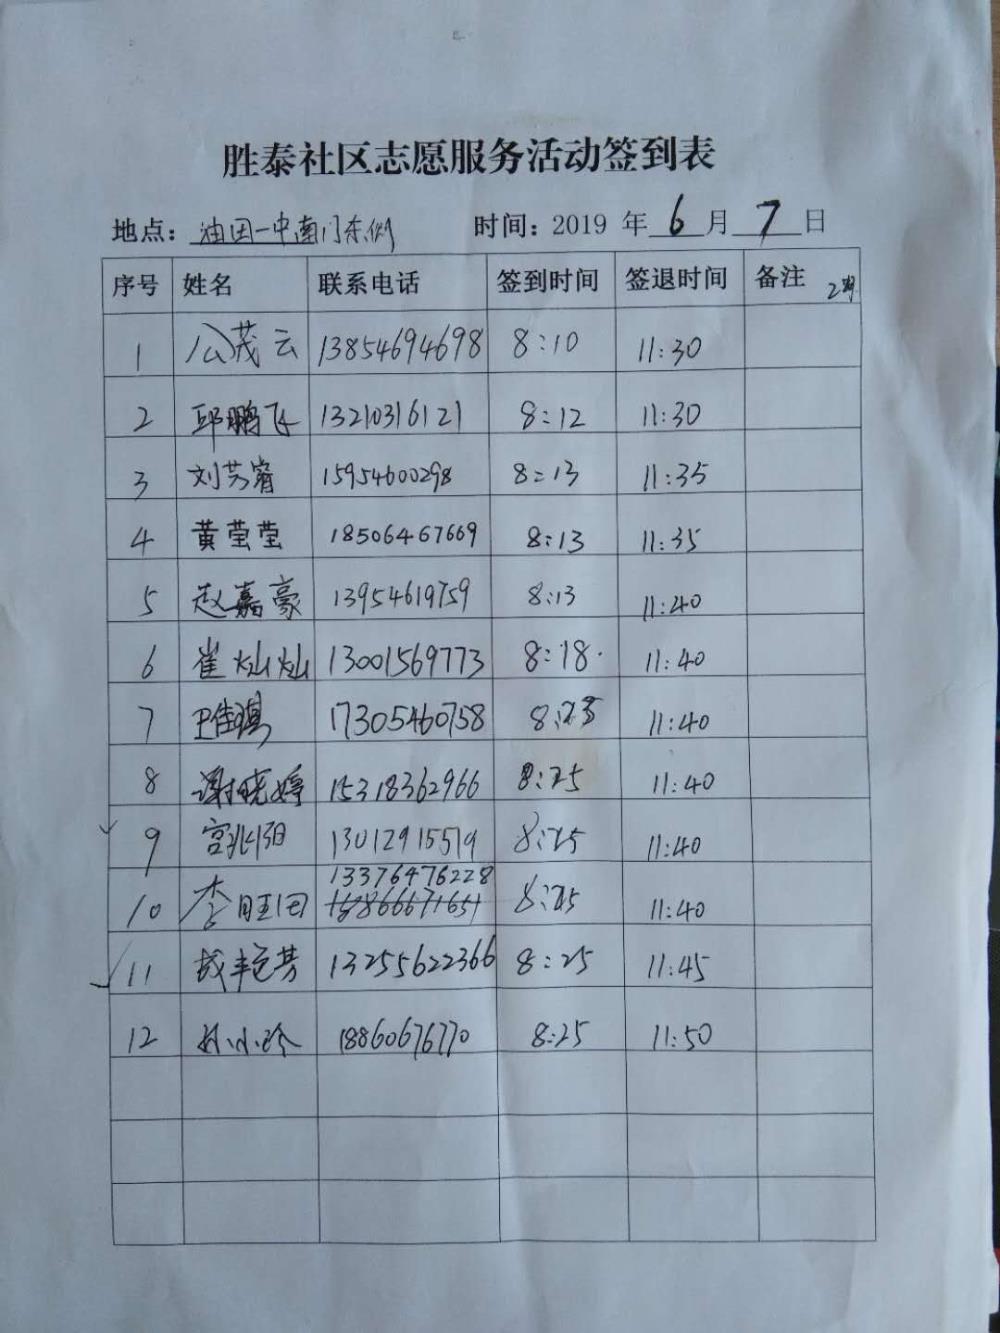 胜泰社区志愿服务活动签到表
地点: 油田一中南门东侧 时间: 2019 年 6 月 7 日
序号 姓名 联系电话 签到时间 签退时间 备注
1 公茂云 13854694698 8:10 11:30
2 邱鹏飞 13210316121 8:12 11:30
3 刘芳睿 15954600298 8:13 11:35
4 黄莹莹 18506467669 8:13 11:35
5 赵嘉豪 13954619759 8:13 11:40
6 崔灿灿 13001569773 8:18 11:40
7 17305460758 8:25 11:40
8 谢晓婷 15318362966 8:25 11:40
9 宫兆阳 13012915519 8:25 11:40
13376476228
10 李旺田 8:25 11:40
11 战丰艳芳 13255622366 8:25 11:45
12 孙小玲 18860676770 8:25 11:50